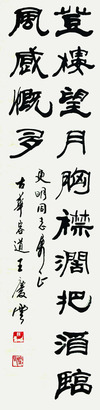 登楼望月胸襟濶把酒臨
風感慨多
更明同志奔正
古華容道王慶雲